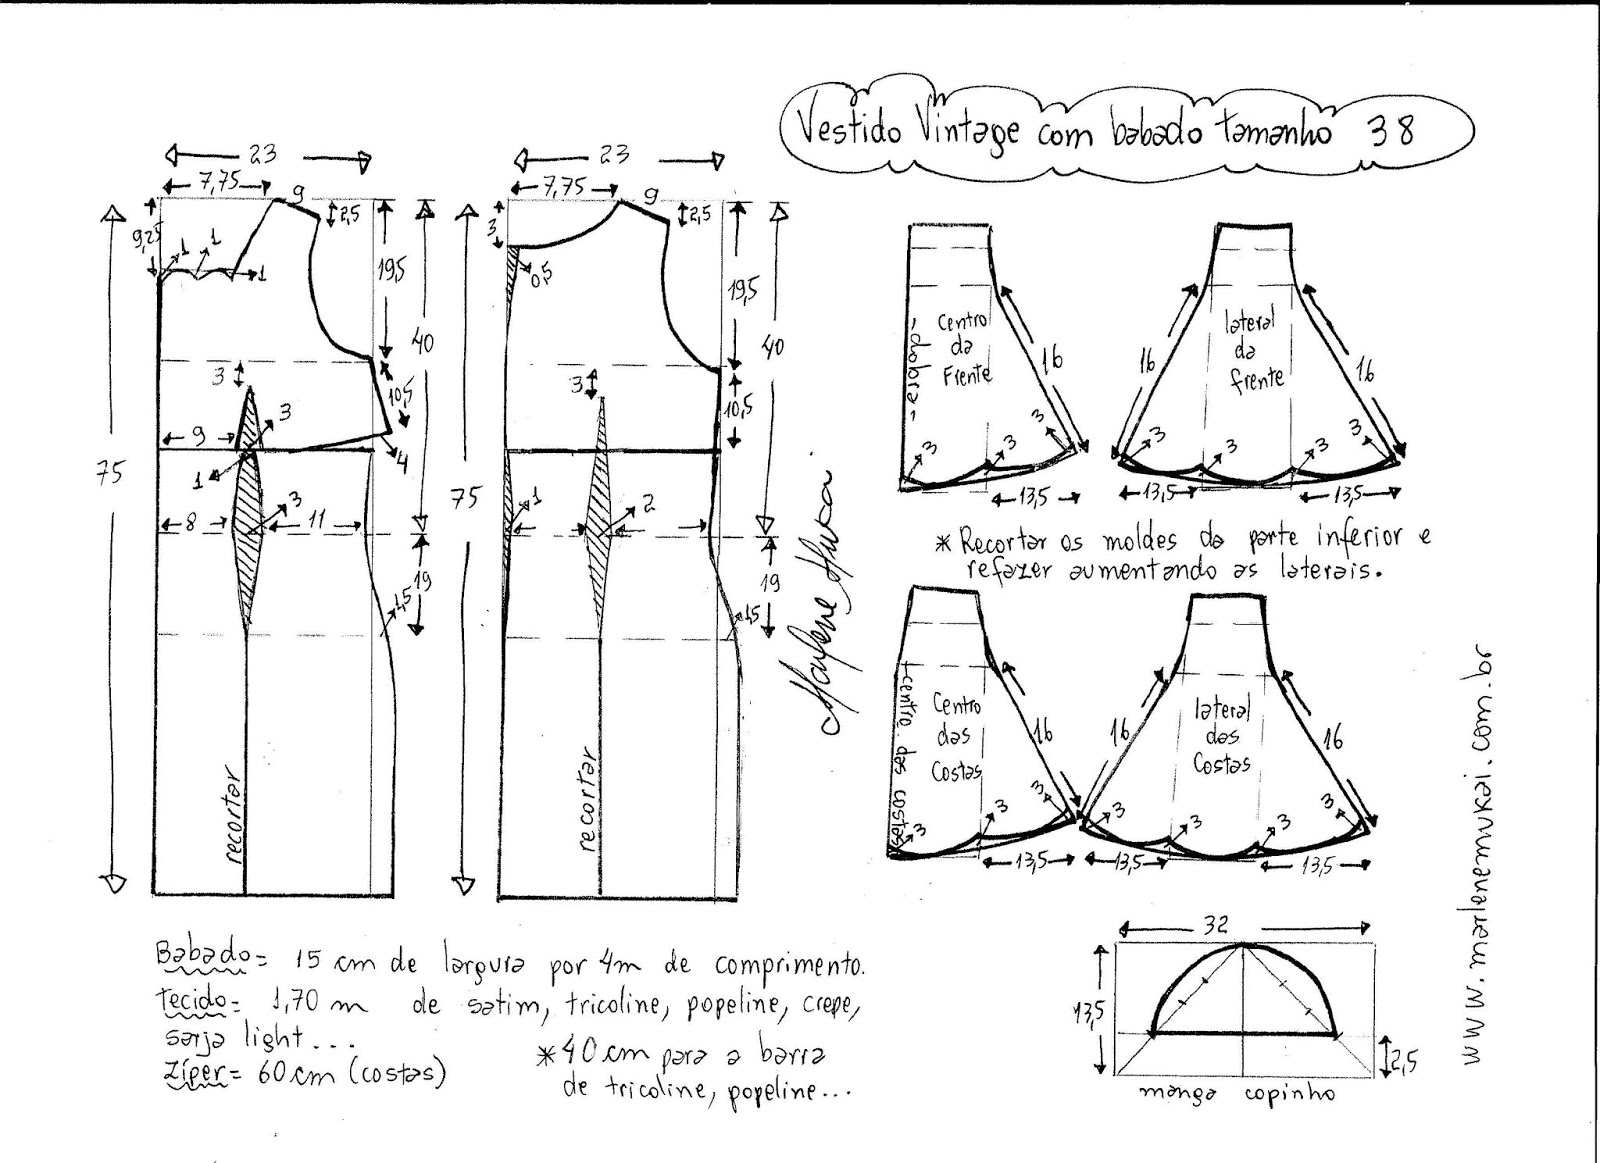 Vestido Vintage com babado tamanho 38
23
7,75
9
2,5
9,25
1
1
1
19,5
40
3
10,5
3
9
4
1
75
3
8
11
19
1,5
recortar
23
7,75
9
2,5
3
0,5
19,5
40
3
10,5
75
1
2
19
1,5
recortar
Centro
da
Frente
-dobra-
16
3
3
3
13,5
lateral
da
frente
16
16
3
3
3
13,5
13,5
* Recortar os moldes da parte inferior e
refazer aumentando as laterais.
Centro
das
Costas
centro das costas
16
3
3
3
13,5
lateral
das
Costas
16
16
3
3
3
3
13,5
13,5
32
13,5
2,5
manga copinho
Babado= 15 cm de largura por 4m de comprimento.
Tecido= 1,70 m de satim, tricoline, popeline, crepe,
sarja light...
Zíper= 60cm (costas)
*40cm para a barra
de tricoline, popeline...
www.marlenemukai.com.br